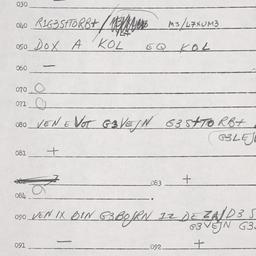 030
040 R1G3STTORB+ / M3/L7XUM3
050 DOX A KOL EQ KOL
060 —
070 O
071 O
080 VEN E VOT G3VEJN G3STTORB+
(G3LEJ
081 +
083 +
084 O
090 VEN IX BIN G3BOJRN IZ DE ZA/D3 S
G3VEJN G3
091 — 092 +